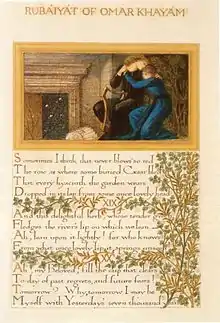 RUBÁIYÁT OF OMAR KHAYÁM
Sometimes I think that never blows so red
The rose as where some buried Cæsar
That every hyacinth the garden wears
Dropped in its lap from some once lovely head
XIX
And this delightful herb whose tender
Fledges the river's lip on which we lean
Ah, lean upon it lightly! for who knows
From what once lovely lip it springs
Ah, my Beloved, fill the cup that clears
Today of past regrets and future fears
Tomorrow? Why, tomorrow I may be
Myself with Yesterday's seven thousand